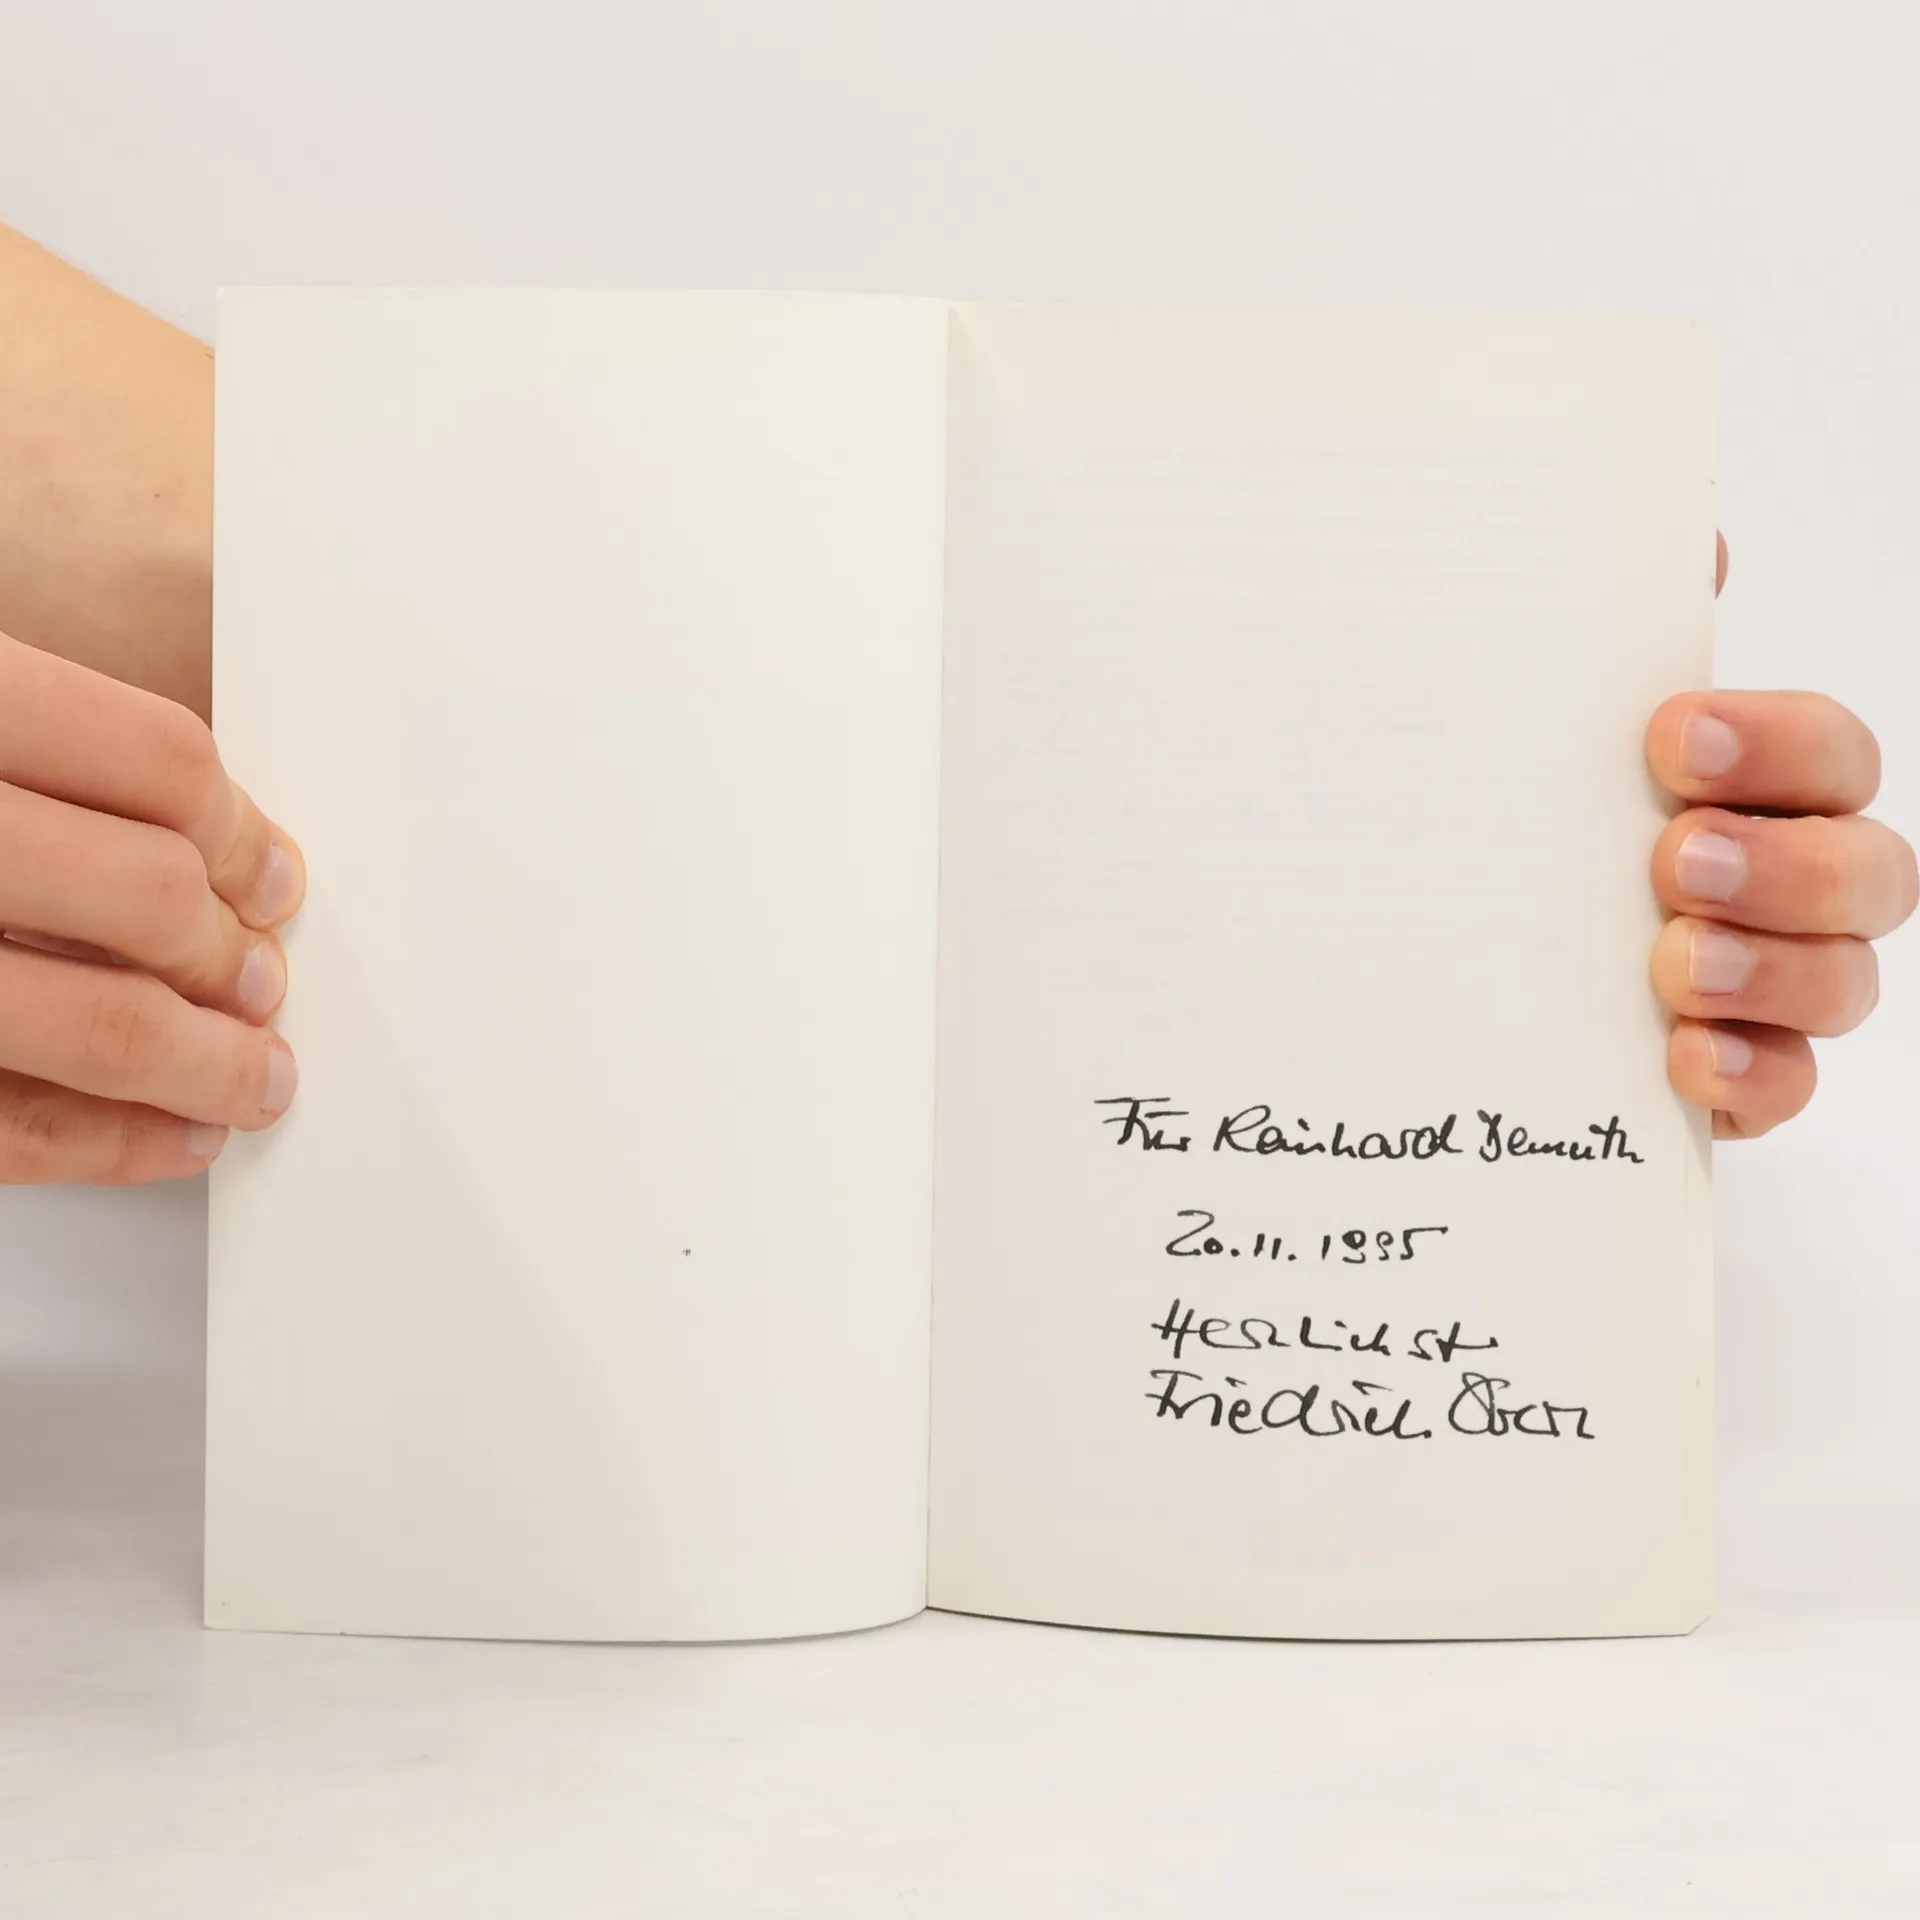 Für Reinhard Demuth
20.11.1995
Herzlichst
Friedrich